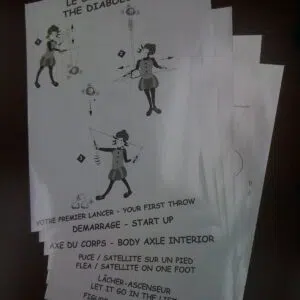 LE
THE DIABOL
VOTRE PREMIER LANCER - YOUR FIRST THROW
DEMARRAGE - START UP
AXE DU CORPS - BODY AXLE INTERIOR
PUCE / SATELLITE SUR UN PIED
FLEA / SATELLITE ON ONE FOOT
LÂCHER-ASCENSEUR
LET IT GO IN THE LIFT